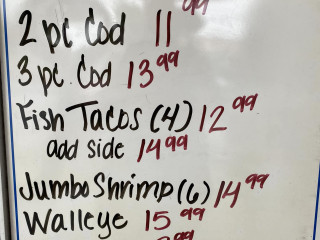 2 pc Cod 11 99
3 pc Cod 13 99
Fish Tacos (4) 12 99
add side 14 99
Jumbo Shrimp (6) 14 99
Walleye 15 99